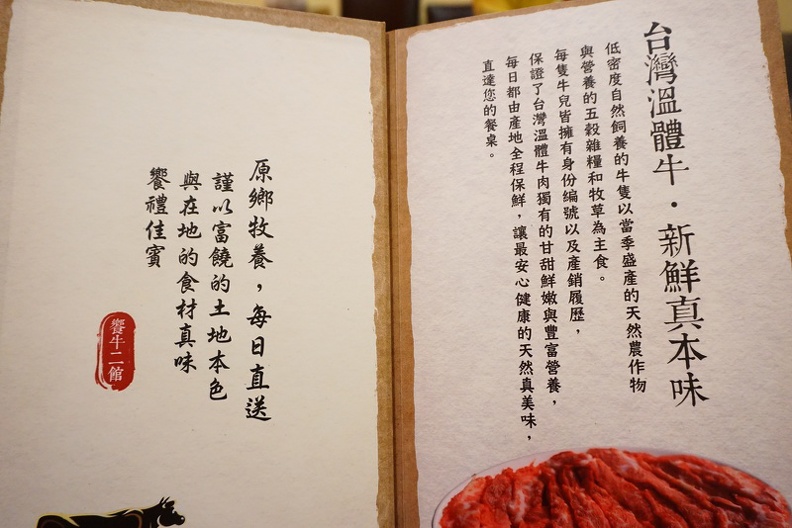 台灣溫體牛・新鮮真本味
低密度自然飼養的牛隻以當季盛產的天然農作物
與營養的五穀雜糧和牧草為主食。
每隻牛兒皆擁有身份編號以及產銷履歷，
保證了台灣溫體牛肉獨有的甘甜鮮嫩與豐富營養，
每日都由產地全程保鮮，讓最安心健康的天然真美味，
直達您的餐桌。
原鄉牧養，每日直送
謹以富饒的土地本色
與在地的食材真味
饗禮佳賓
饗牛二館